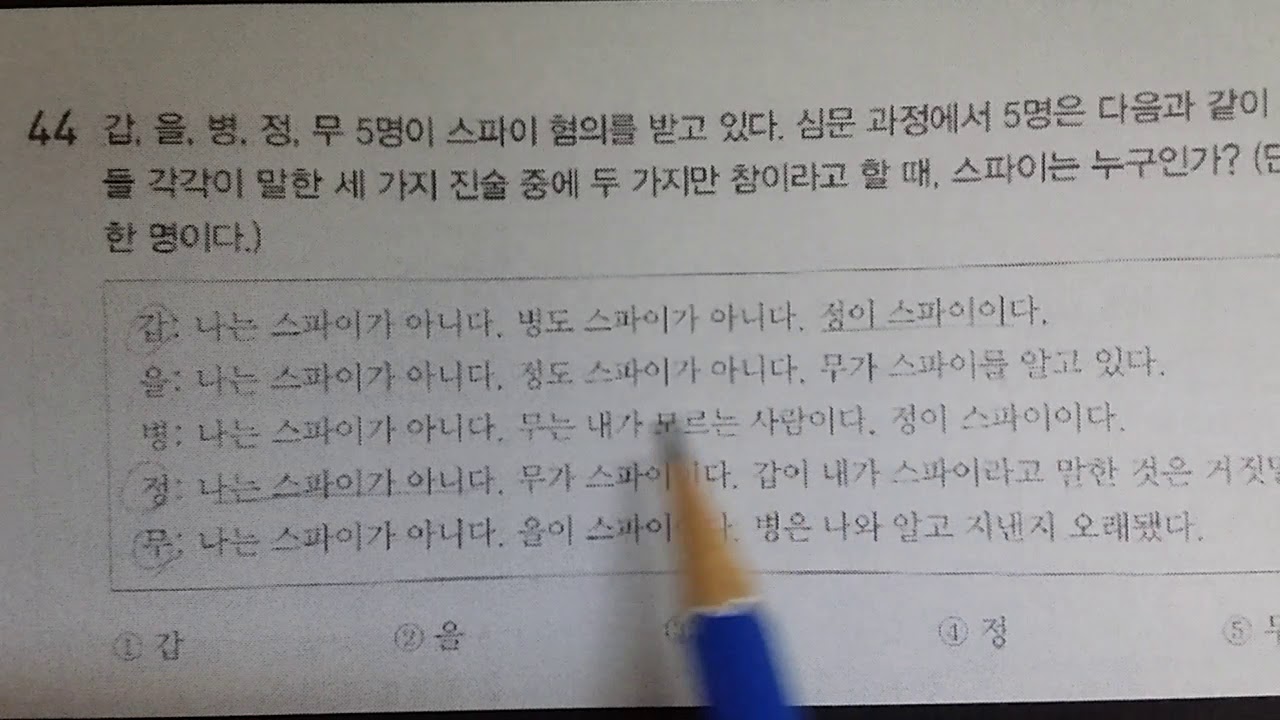 44 갑, 을, 병, 정, 무 5명이 스파이 혐의를 받고 있다. 심문 과정에서 5명은 다음과 같이
들 각각이 말한 세 가지 진술 중에 두 가지만 참이라고 할 때, 스파이는 누구인가? (단
한 명이다.)
갑: 나는 스파이가 아니다. 병도 스파이가 아니다. 정이 스파이이다.
을: 나는 스파이가 아니다. 정도 스파이가 아니다. 무가 스파이를 알고 있다.
병: 나는 스파이가 아니다. 무는 내가 모르는 사람이다. 정이 스파이이다.
정: 나는 스파이가 아니다. 무가 갑이 내가 스파이라고 말한 것은
무: 나는 스파이가 아니다. 을이 병은 나와 알고 지낸지 오래됐다.
① 갑 ② 을 ④ 정 ⑤